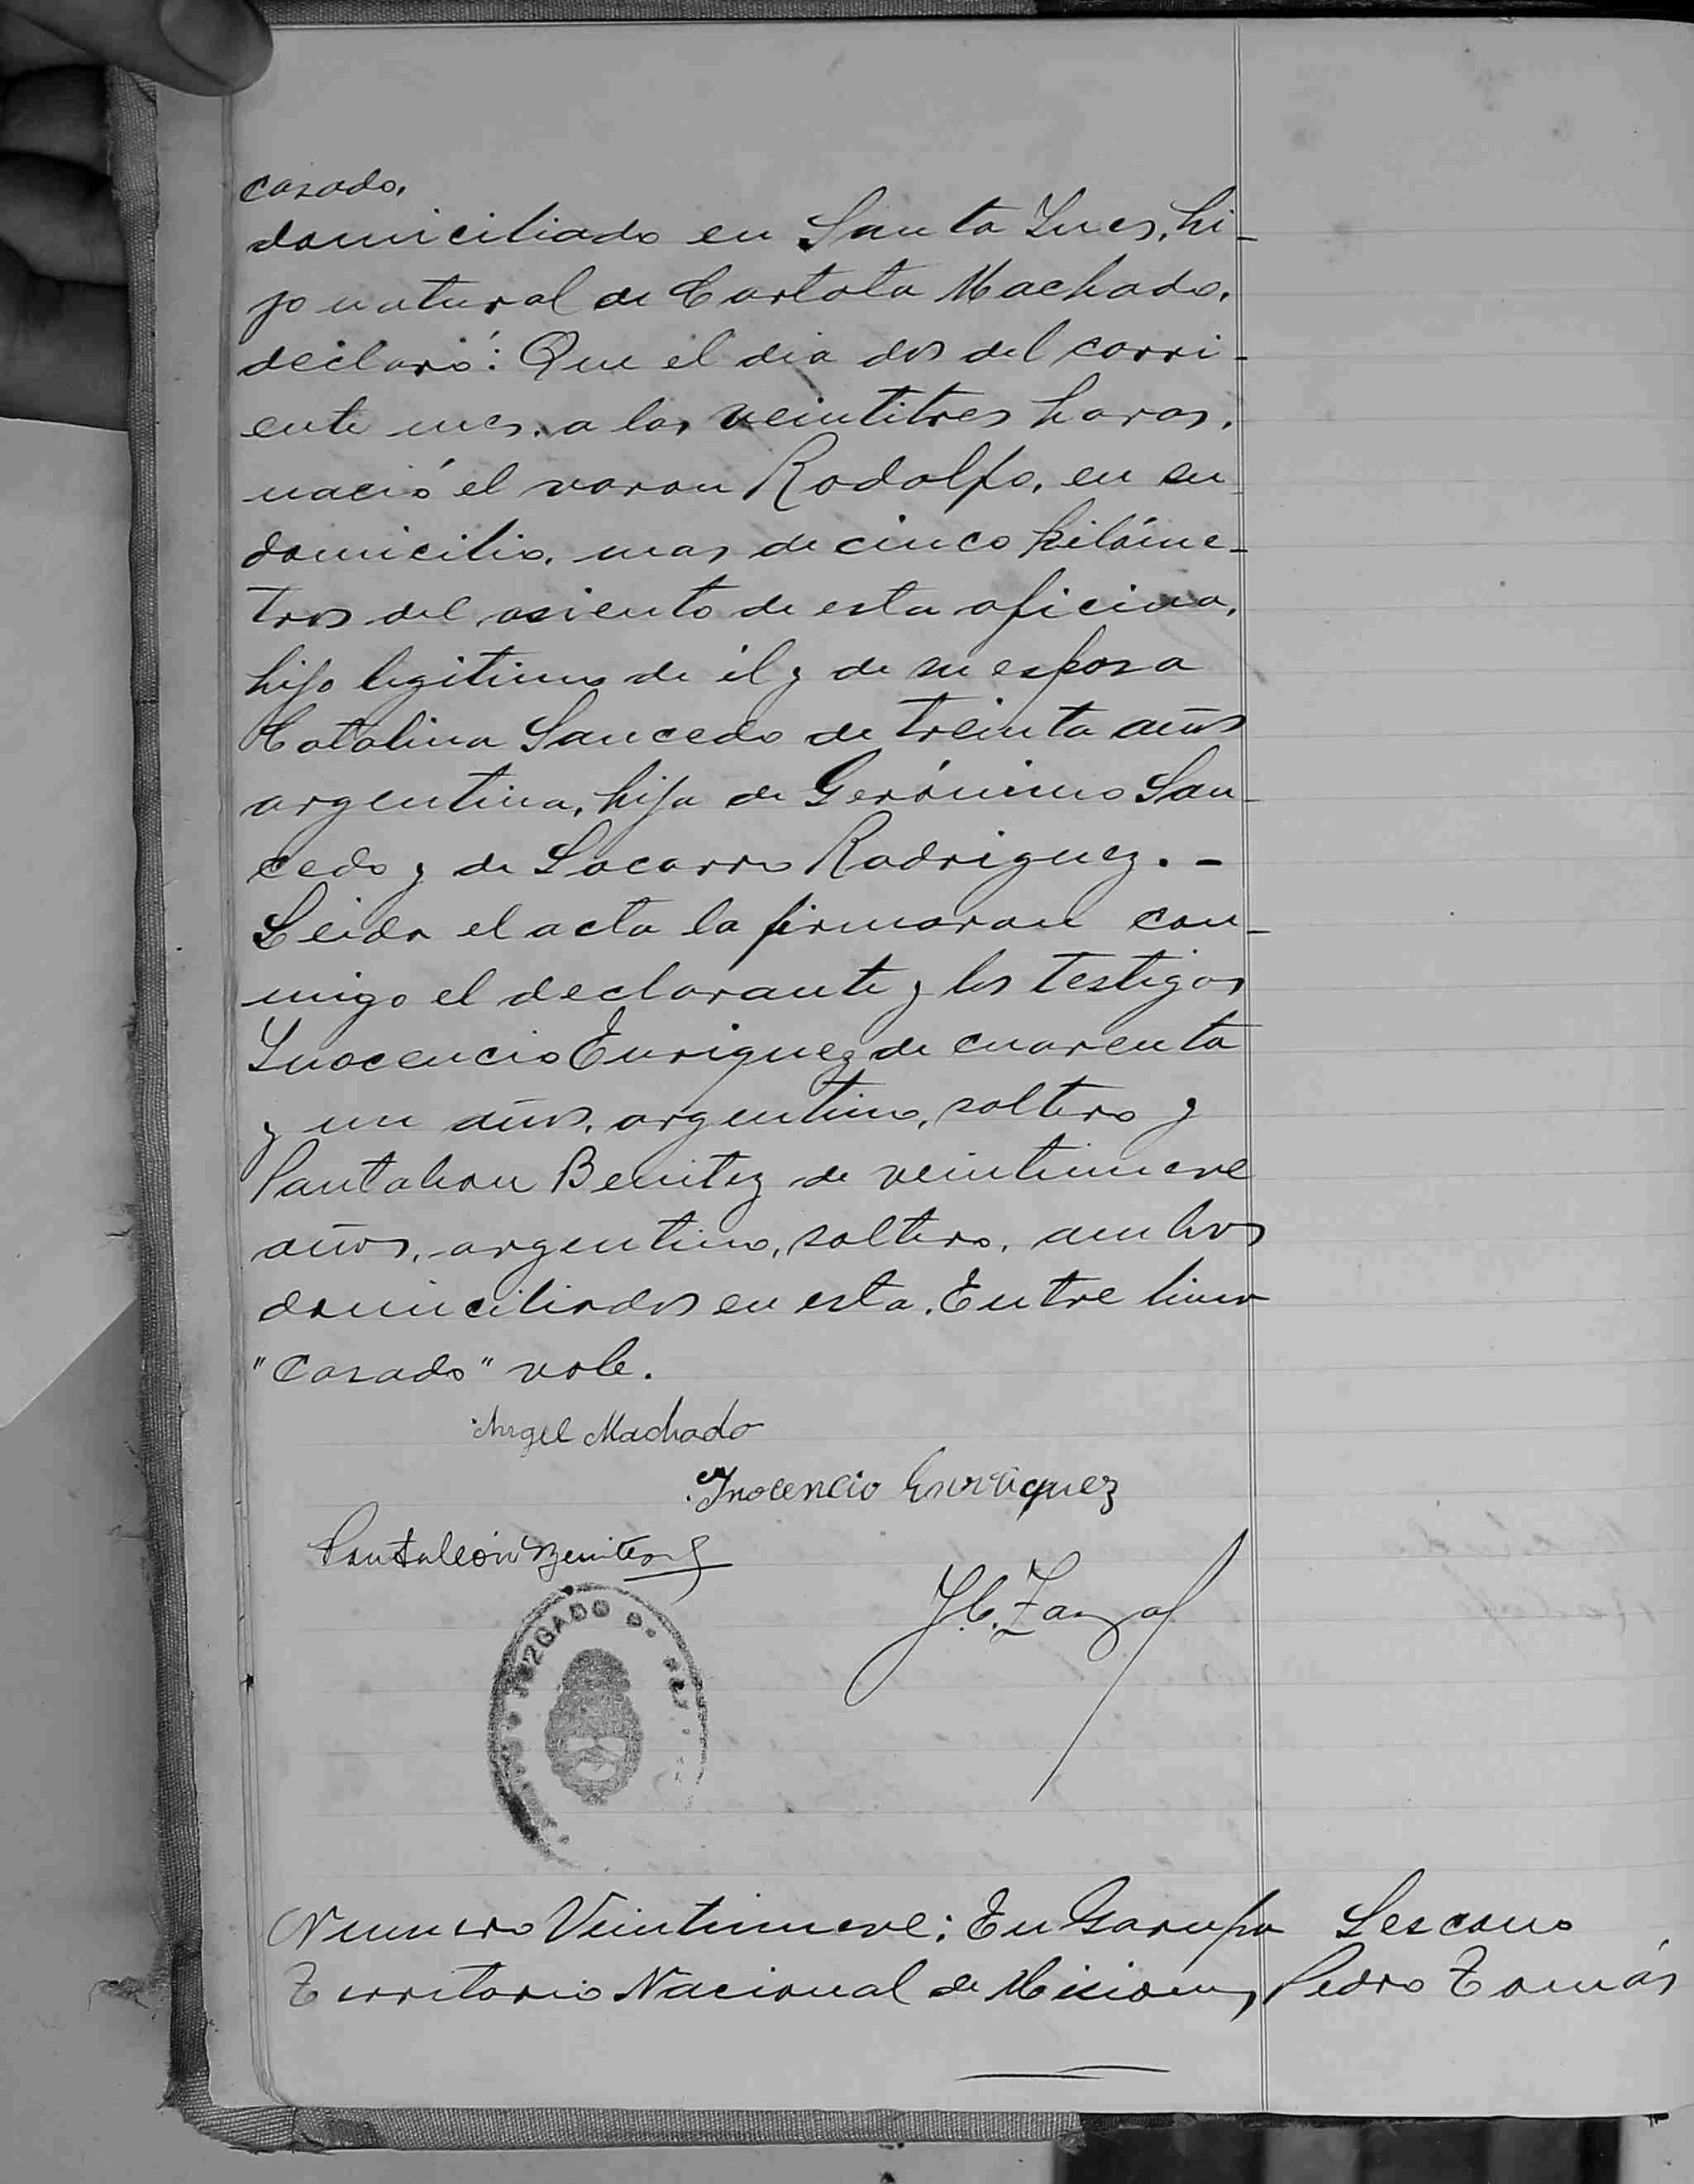 casado,
domiciliado en Santa Ines, hi-
jo natural de Carlota Machado,
declaró: Que el dia dos del corri-
ente mes, a las veintitres horas,
nació el varon Rodolfo, en su
domicilio, mas de cinco kilóme-
tros del asiento de esta oficina,
hijo legitimo de él y de su esposa
Catalina Saucedo de treinta años
argentina, hija de Gerónimo Sau-
cedo y de Socorro Rodriguez. -
Leida el acta la firmaron con-
migo el declarante y los testigos
Inocencio Enriquez de cuarenta
y un años, argentino, soltero y
Pantaleon Benitez de veintinueve
años, argentino, soltero, ambos
domiciliados en esta. Entre linea
"Casado" vale.
Angel Machado
Inocencio Enrriquez
Pantaleón Benitez
JUZGADO
Numero Veintinueve: En Garupa
Territorio Nacional de Misiones,
Lescano
Pedro Tomás